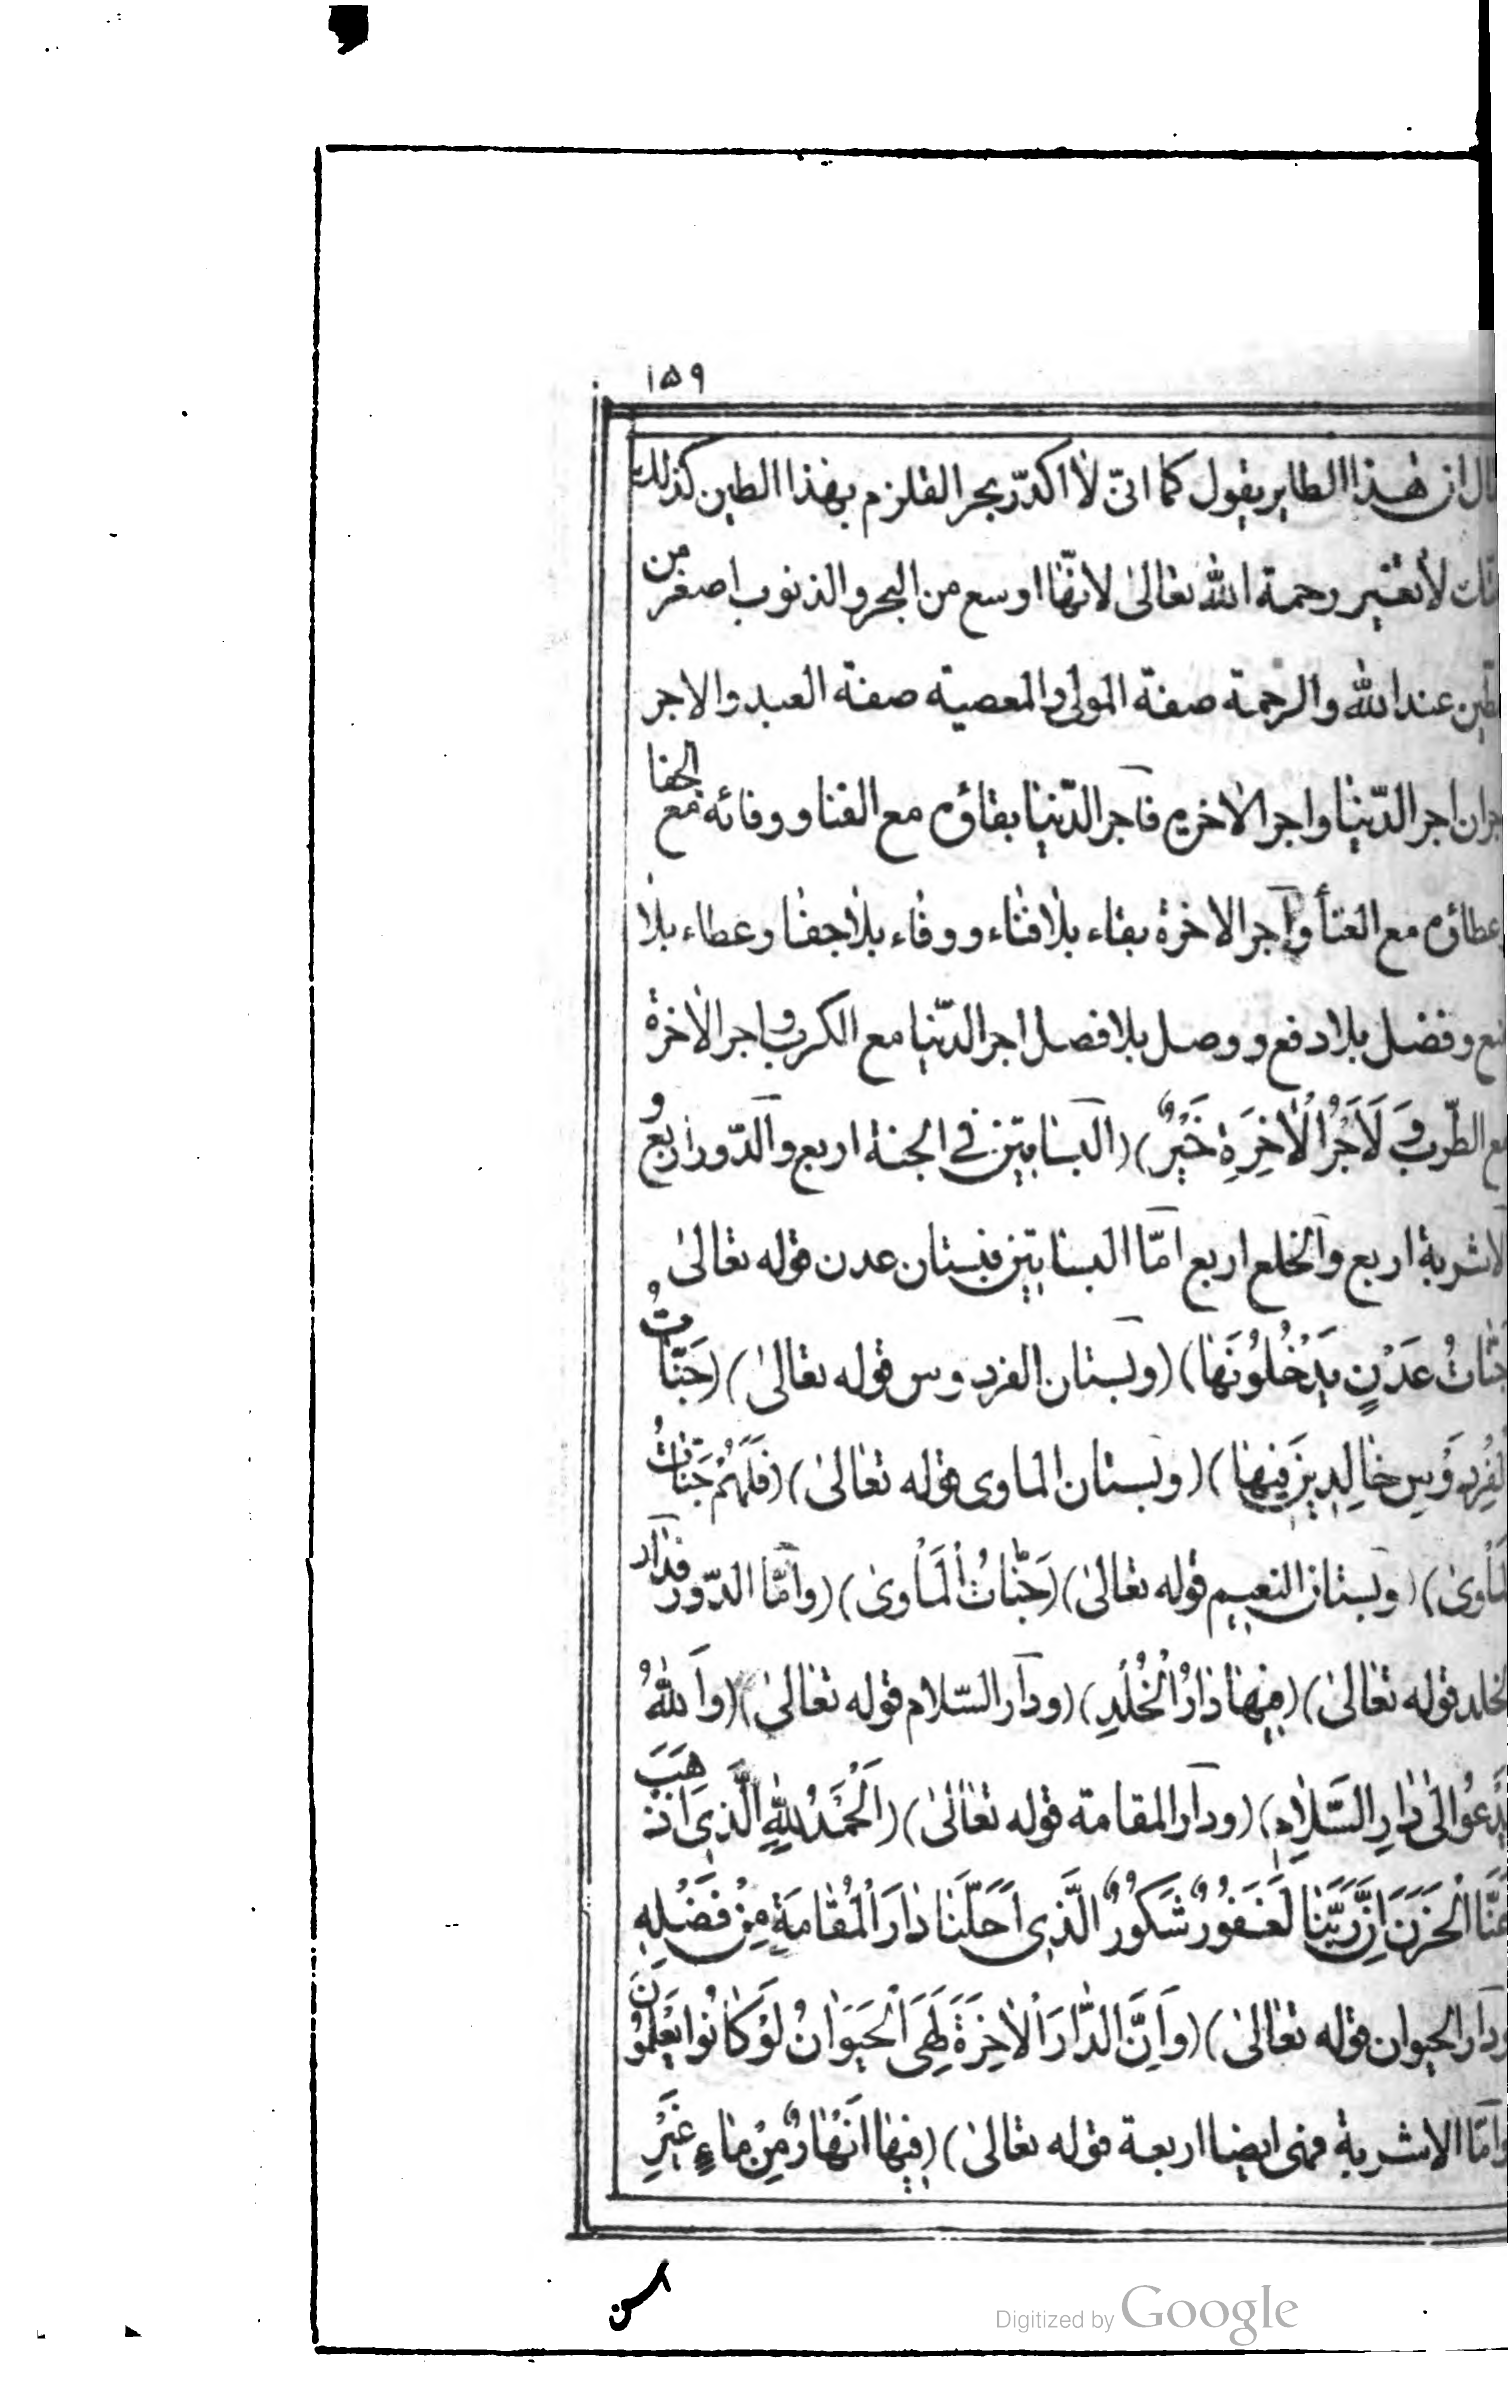 ١٥٩
ان هذا الطاير يقول كما انّى لا اكدّر بحر القلزم بهذا الطين كذلك
لا تغير رحمة الله تعالىٰ لانّها اوسع من البحر والذنوب اصغر من
عند الله والرحمة صفة المولى والمعصية صفة العبد والاجر
اجر الدّنيا واجر الاخره فاجر الدّنيا بقاؤه مع الفنا ووفائه مع الجفا
عطاؤه مع العنا واجر الاخرة بقاء بلا فناء ووفاء بلا جفا وعطاء بلا
وفضل بلا دفع ووصل بلا فصل اجر الدّنيا مع الكرب واجر الاخرة
الطّرب وَلَاَجْرُ الْاٰخِرَةِ خَيْرٌ) (البساتين في الجنة اربع والدّور اربع و
الاشربة اربع والخلع اربع امّا البساتين فبستان عدن قوله تعالىٰ
جَنَّاتُ عَدْنٍ يَدْخُلُونَهَا) (وبستان الفردوس قوله تعالىٰ) (جَنَّاتُ
الْفِرْدَوْسِ خَالِدِينَ فِيهَا) (وبستان الماوى قوله تعالىٰ) (فَلَهُمْ جَنَّاتُ
الْمَأْوىٰ) (وبستان النعيم قوله تعالىٰ) (جَنَّاتُ الْمَأْوىٰ) (وامّا الدّور فدار
الخلد قوله تعالىٰ) (فِيهَا دَارُ الْخُلْدِ) (ودار السّلام قوله تعالىٰ) (وَاللّٰهُ
يَدْعُوا اِلىٰ دَارِ السَّلَامِ) (ودار المقامة قوله تعالىٰ) (اَلْحَمْدُ لِلّٰهِ الَّذِى اَذْهَبَ
عَنَّا الْحَزَنَ اِنَّ رَبَّنَا لَغَفُورٌ شَكُورٌ الَّذِى اَحَلَّنَا دَارَ الْمُقَامَةِ مِنْ فَضْلِهِ
ودار الحيوان قوله تعالىٰ) (وَاِنَّ الدَّارَ الْاٰخِرَةَ لَهِىَ الْحَيَوَانُ لَوْ كَانُوا يَعْلَمُونَ
وامّا الاشربة فهى ايضا اربعة قوله تعالىٰ) (فِيهَا اَنْهَارٌ مِنْ مَاءٍ غَيْرِ
اسن
Digitized by Google